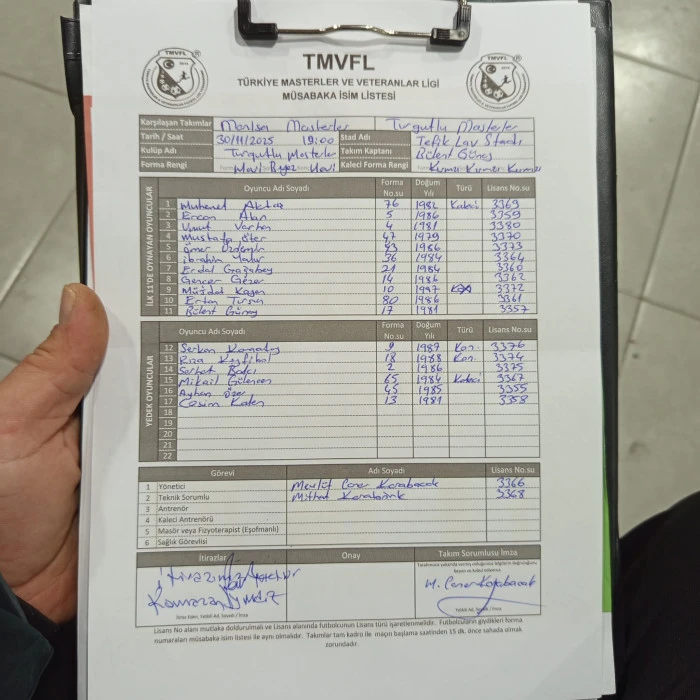 TMVFL
TÜRKİYE MASTERLER VE VETERANLAR LİGİ
MÜSABAKA İSİM LİSTESİ
Karşılaşan Takımlar Manisa Masterler Turgutlu Masterler
Tarih / Saat 30/11/2025 19:00 Stad Adı Tefik Lav Stadı
Kulüp Adı Turgutlu Masterler Takım Kaptanı Bülent Güneş
Forma Rengi Mavi Beyaz Mavi Kaleci Forma Rengi Kırmızı Kırmızı Kırmızı
İLK 11'DE OYNAYAN OYUNCULAR
Oyuncu Adı Soyadı Forma No.su Doğum Yılı Türü Lisans No.su
1 Muhamet Aktaş 76 1982 Kaleci 3369
2 Ercan Alan 5 1986 3359
3 Umut 4 1981 3380
4 Mustafa 47 1979 3370
5 Ömer Özdemir 43 1986 3373
6 İbrahim 36 1984 3364
7 Erdal 21 1984 3360
8 Gencer Gezer 14 1986 3362
9 10 1997 3372
10 Ertan Tursun 80 1986 3361
11 Bülent Güneş 17 1981 3357
YEDEK OYUNCULAR
Oyuncu Adı Soyadı Forma No.su Doğum Yılı Türü Lisans No.su
12 Serkan 9 1987 Kon. 3376
13 Rıza 18 1988 Kon. 3374
14 Serhat 2 1986 3375
15 Mikail 65 1984 Kaleci 3367
16 Ayhan Özer 45 1985 3355
17 13 1981 3358
18
19
20
21
22
Görevi Adı Soyadı Lisans No.su
1 Yönetici Mevlüt Caner Karabacak 3366
2 Teknik Sorumlu Mithat 3368
3 Antrenör
4 Kaleci Antrenörü
5 Masör veya Fizyoterapist (Eşofmanlı)
6 Sağlık Görevlisi
İtirazlar Onay Takım Sorumlusu İmza
M. Caner Karabacak
Ramazan
Lisans No alanı mutlaka doldurulmalı ve Lisans alanında futbolcunun Lisans türü işaretlenmelidir. Futbolcuların giydikleri forma
numaraları müsabaka isim listesi ile aynı olmalıdır. Takımlar tam kadro ile maçın başlama saatinden 15 dk. önce sahada olmak
zorundadır.